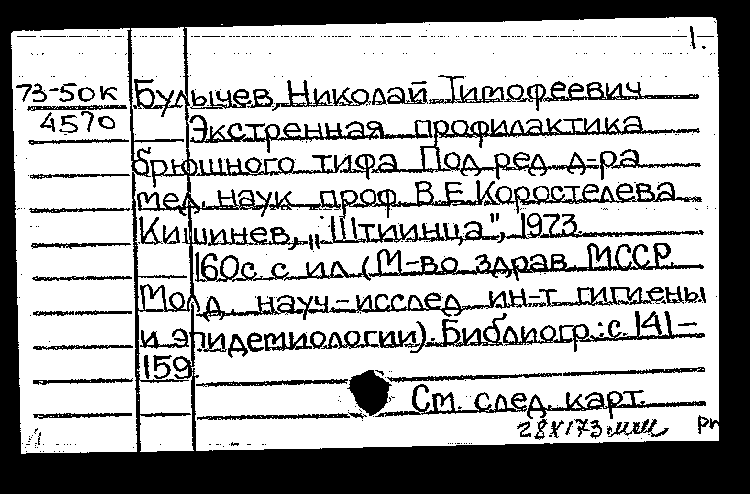 1.
73-50к Булычев, Николай Тимофеевич
4570 Экстренная профилактика
брюшного тифа Под ред д-ра
мед. наук проф. В.Е. Коростелева
Кишинев, „Штиинца", 1973
160с с ил (М-во здрав МССР.
Молд. науч.-исслед ин-т гигиены
и эпидемиологии). Библиогр.: с. 141-
159
См. след. карт.
28X173 мм